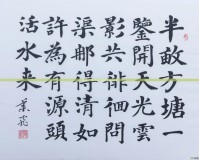 半畝方塘一
鑒開天光雲
影共徘徊問
渠那得清如
許為有源頭
活水來